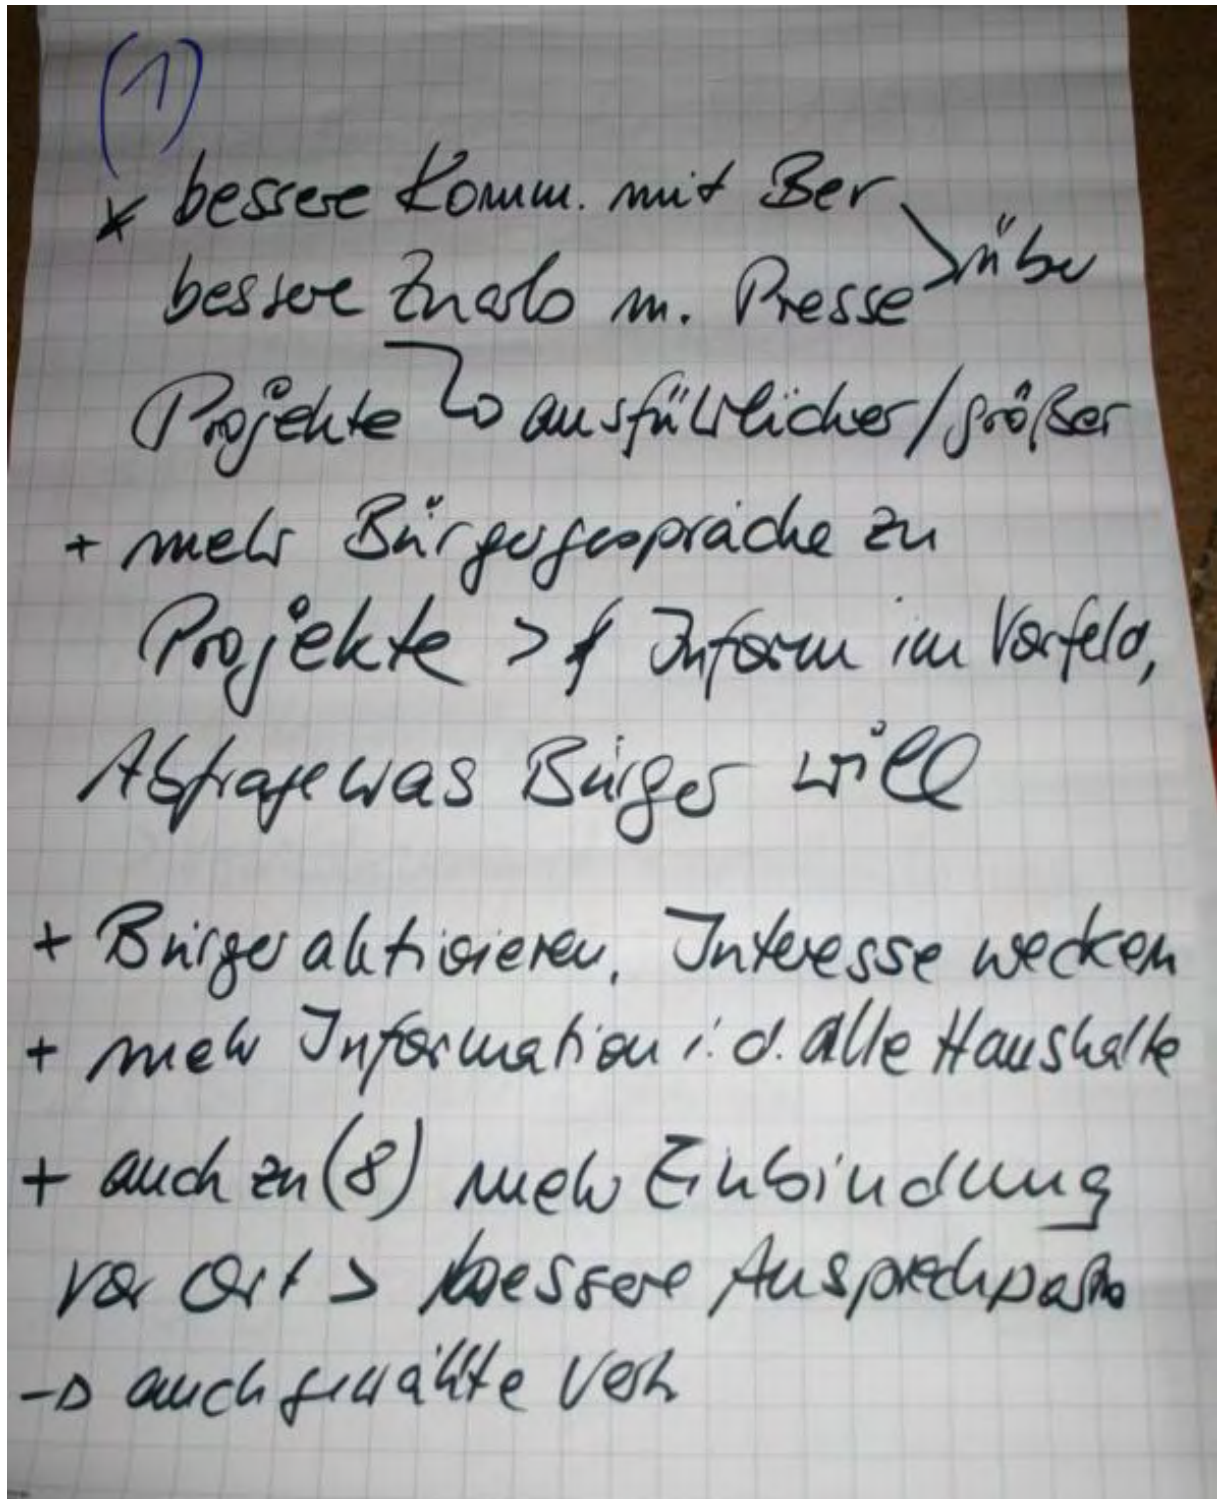 (1)
* bessere Komm. mit Ber
über
bessere Zuarb m. Presse
Projekte → ausführlicher/größer
+ mehr Bürgergespräche zu
Projekte > Inform im Vorfeld,
Abfrage was Bürger will
+ Bürger aktivieren, Interesse wecken
+ mehr Information i. d. alle Haushalte
+ auch zu (8) mehr Einbindung
vor Ort > bessere Ansprechpartn
→ auch gewählte Vertr